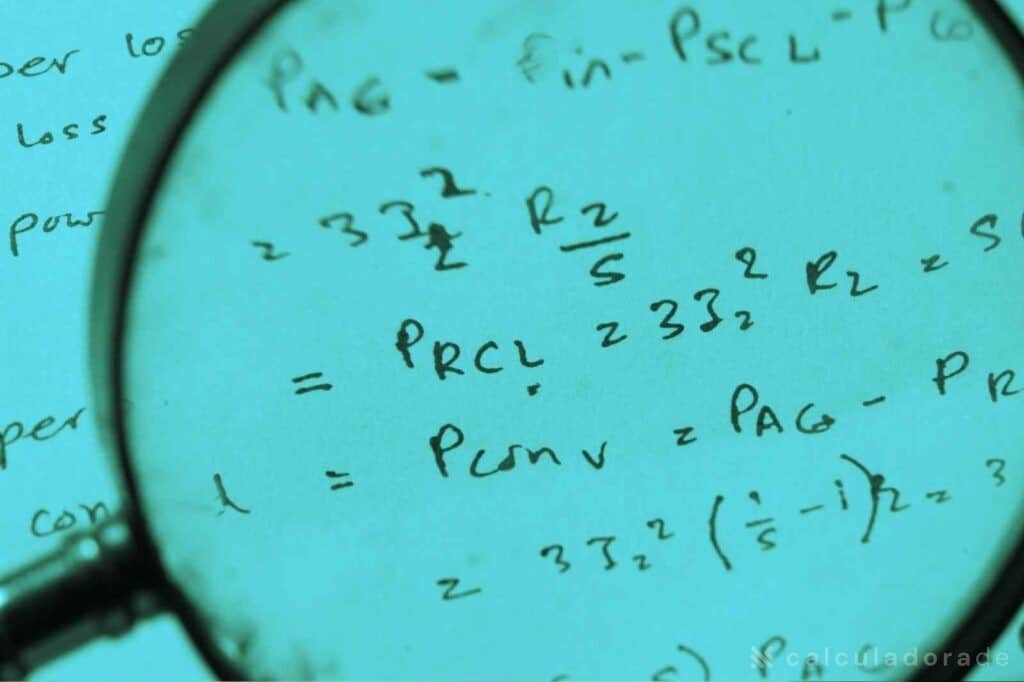 per los
loss
pow
per
con
P_AG - P_in - P_SCL - P
= 3I_2^2 R_2/s
= P_RCL = 3I_2^2 R_2 = S
l = P_conv = P_AG - P_R
= 3I_2^2 (1/s - 1) R_2 = 3
) P_AG
calculadorade